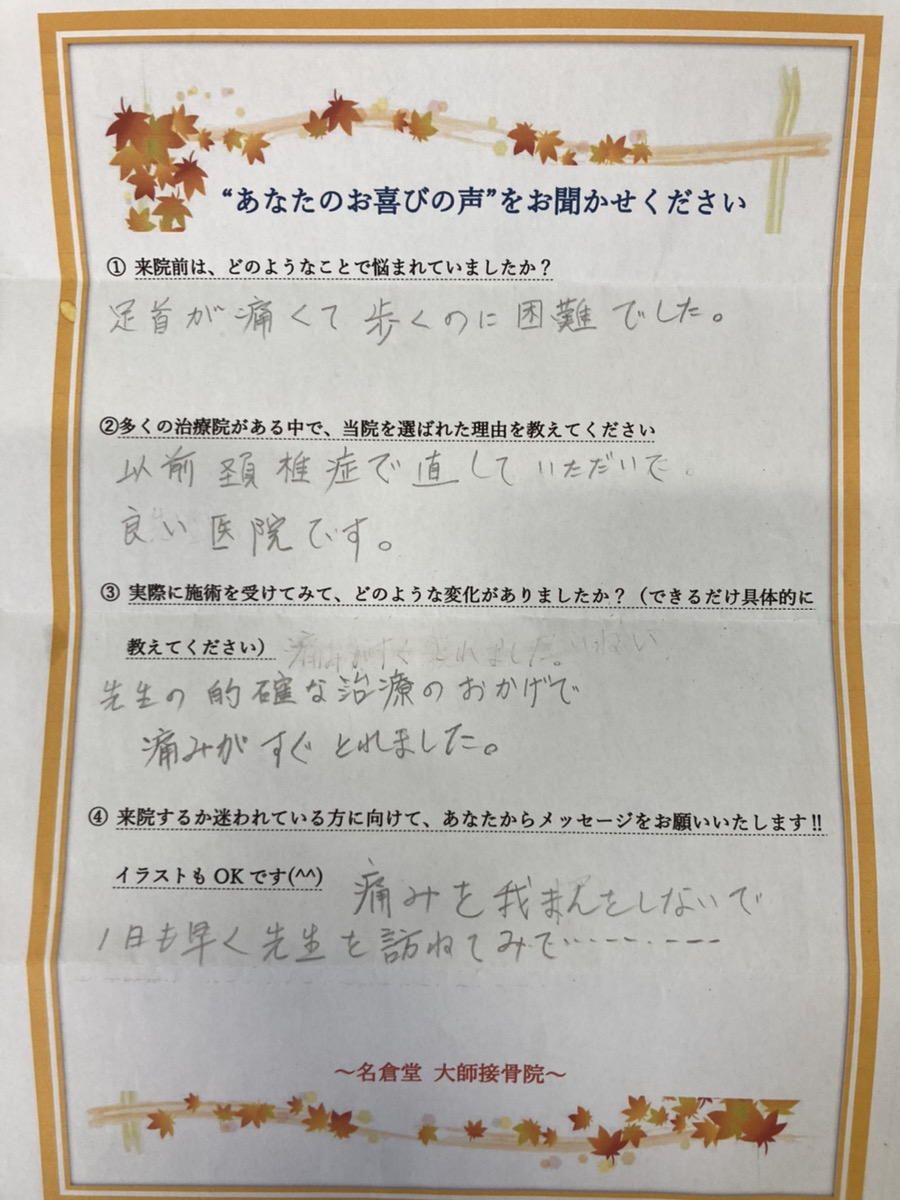 “あなたのお喜びの声”をお聞かせください
① 来院前は、どのようなことで悩まれていましたか？
足首が痛くて歩くのに困難でした。
②多くの治療院がある中で、当院を選ばれた理由を教えてください
以前頚椎症で直していただいで
良い医院です。
③ 実際に施術を受けてみて、どのような変化がありましたか？（できるだけ具体的に
教えてください） 痛みがすぐとれました。
先生の的確な治療のおかげで
痛みがすぐとれました。
④ 来院するか迷われている方に向けて、あなたからメッセージをお願いいたします!!
イラストも OK です(^^) 痛みを我まんをしないで
1日も早く先生を訪ねてみで…………
～名倉堂 大師接骨院～